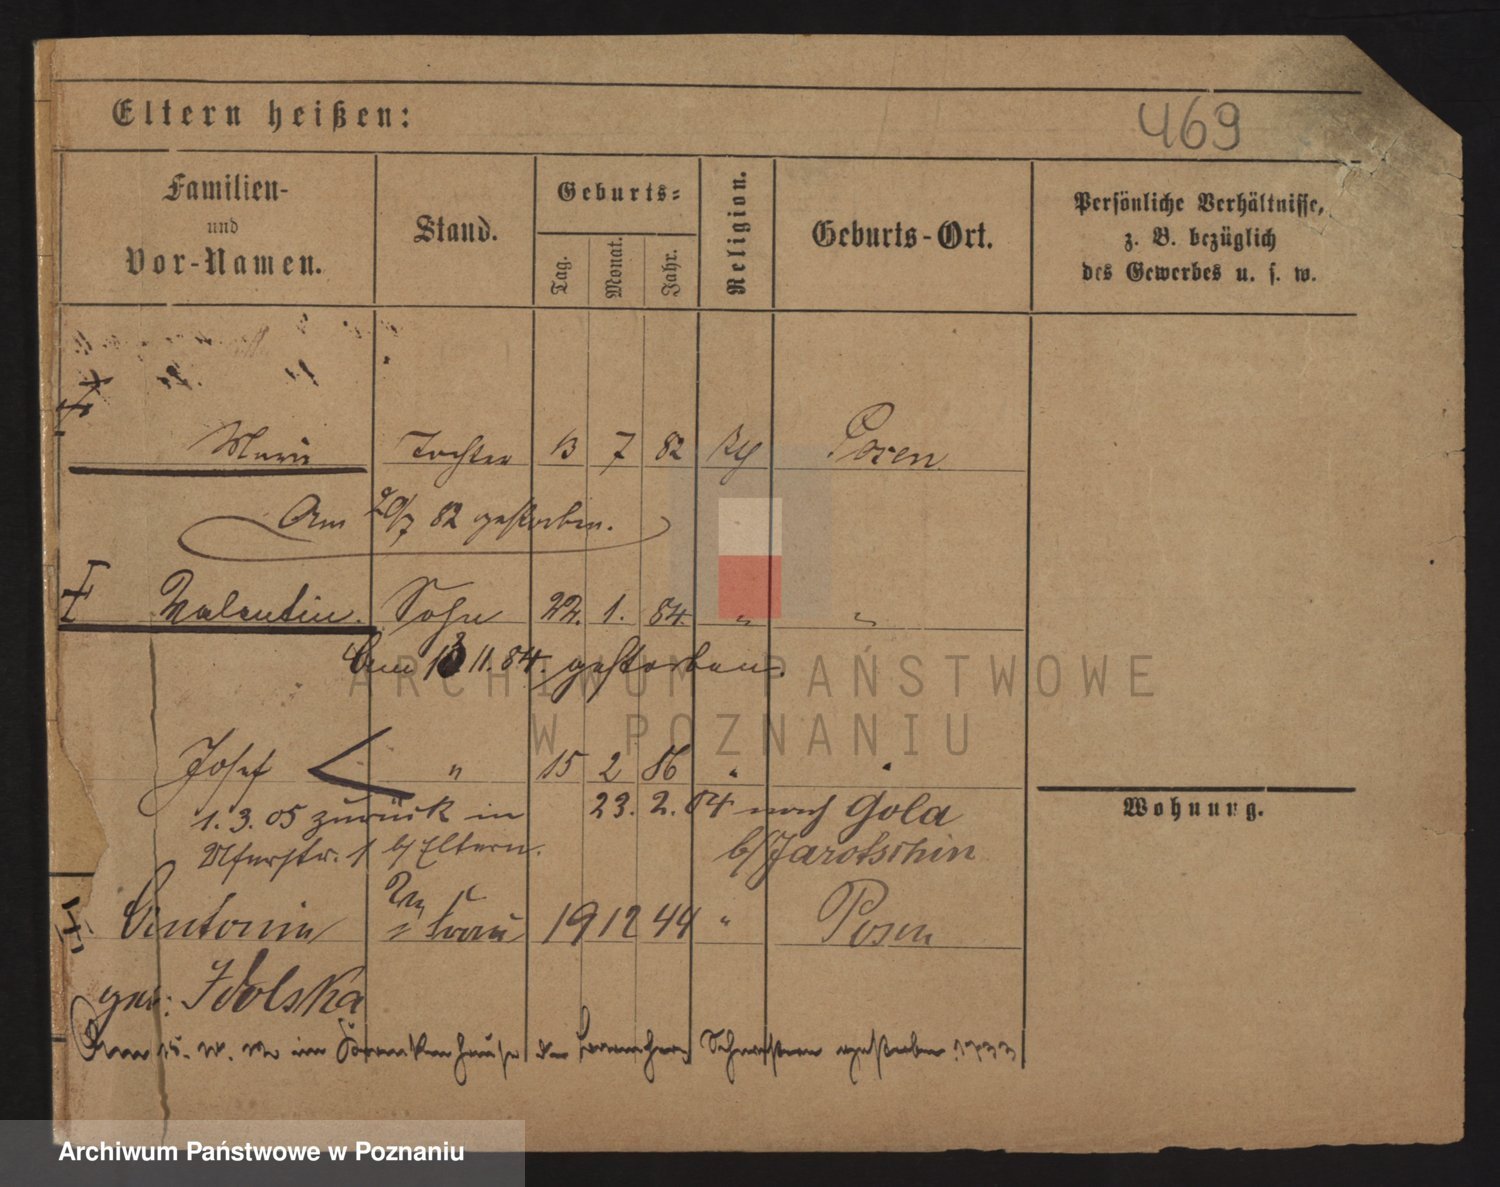 Eltern heißen:
469
Familien-
und
Vor-Namen.
Stand.
Geburts-
Tag.
Monat.
Jahr.
Religion.
Geburts-Ort.
Persönliche Verhältnisse,
z. B. bezüglich
des Gewerbes u. s. w.
Marie Tochter 13 7 82 Posen
Am 29/7 82 gestorben.
Valentin. Sohn 22. 1. 84. " "
Am 11.84. gestorben.
Josef " 15 2 86 " "
1. 3. 05 zurück in 23. 2. 04 nach Gola
1 b/ Eltern. b/ Jarotschin
Wohnung.
Antonie Frau 19 12 44 " Posen
geb: Idolska
Am im Krankenhause der Schwestern gestorben
ARCHIWUM PAŃSTWOWE
W POZNANIU
Archiwum Państwowe w Poznaniu